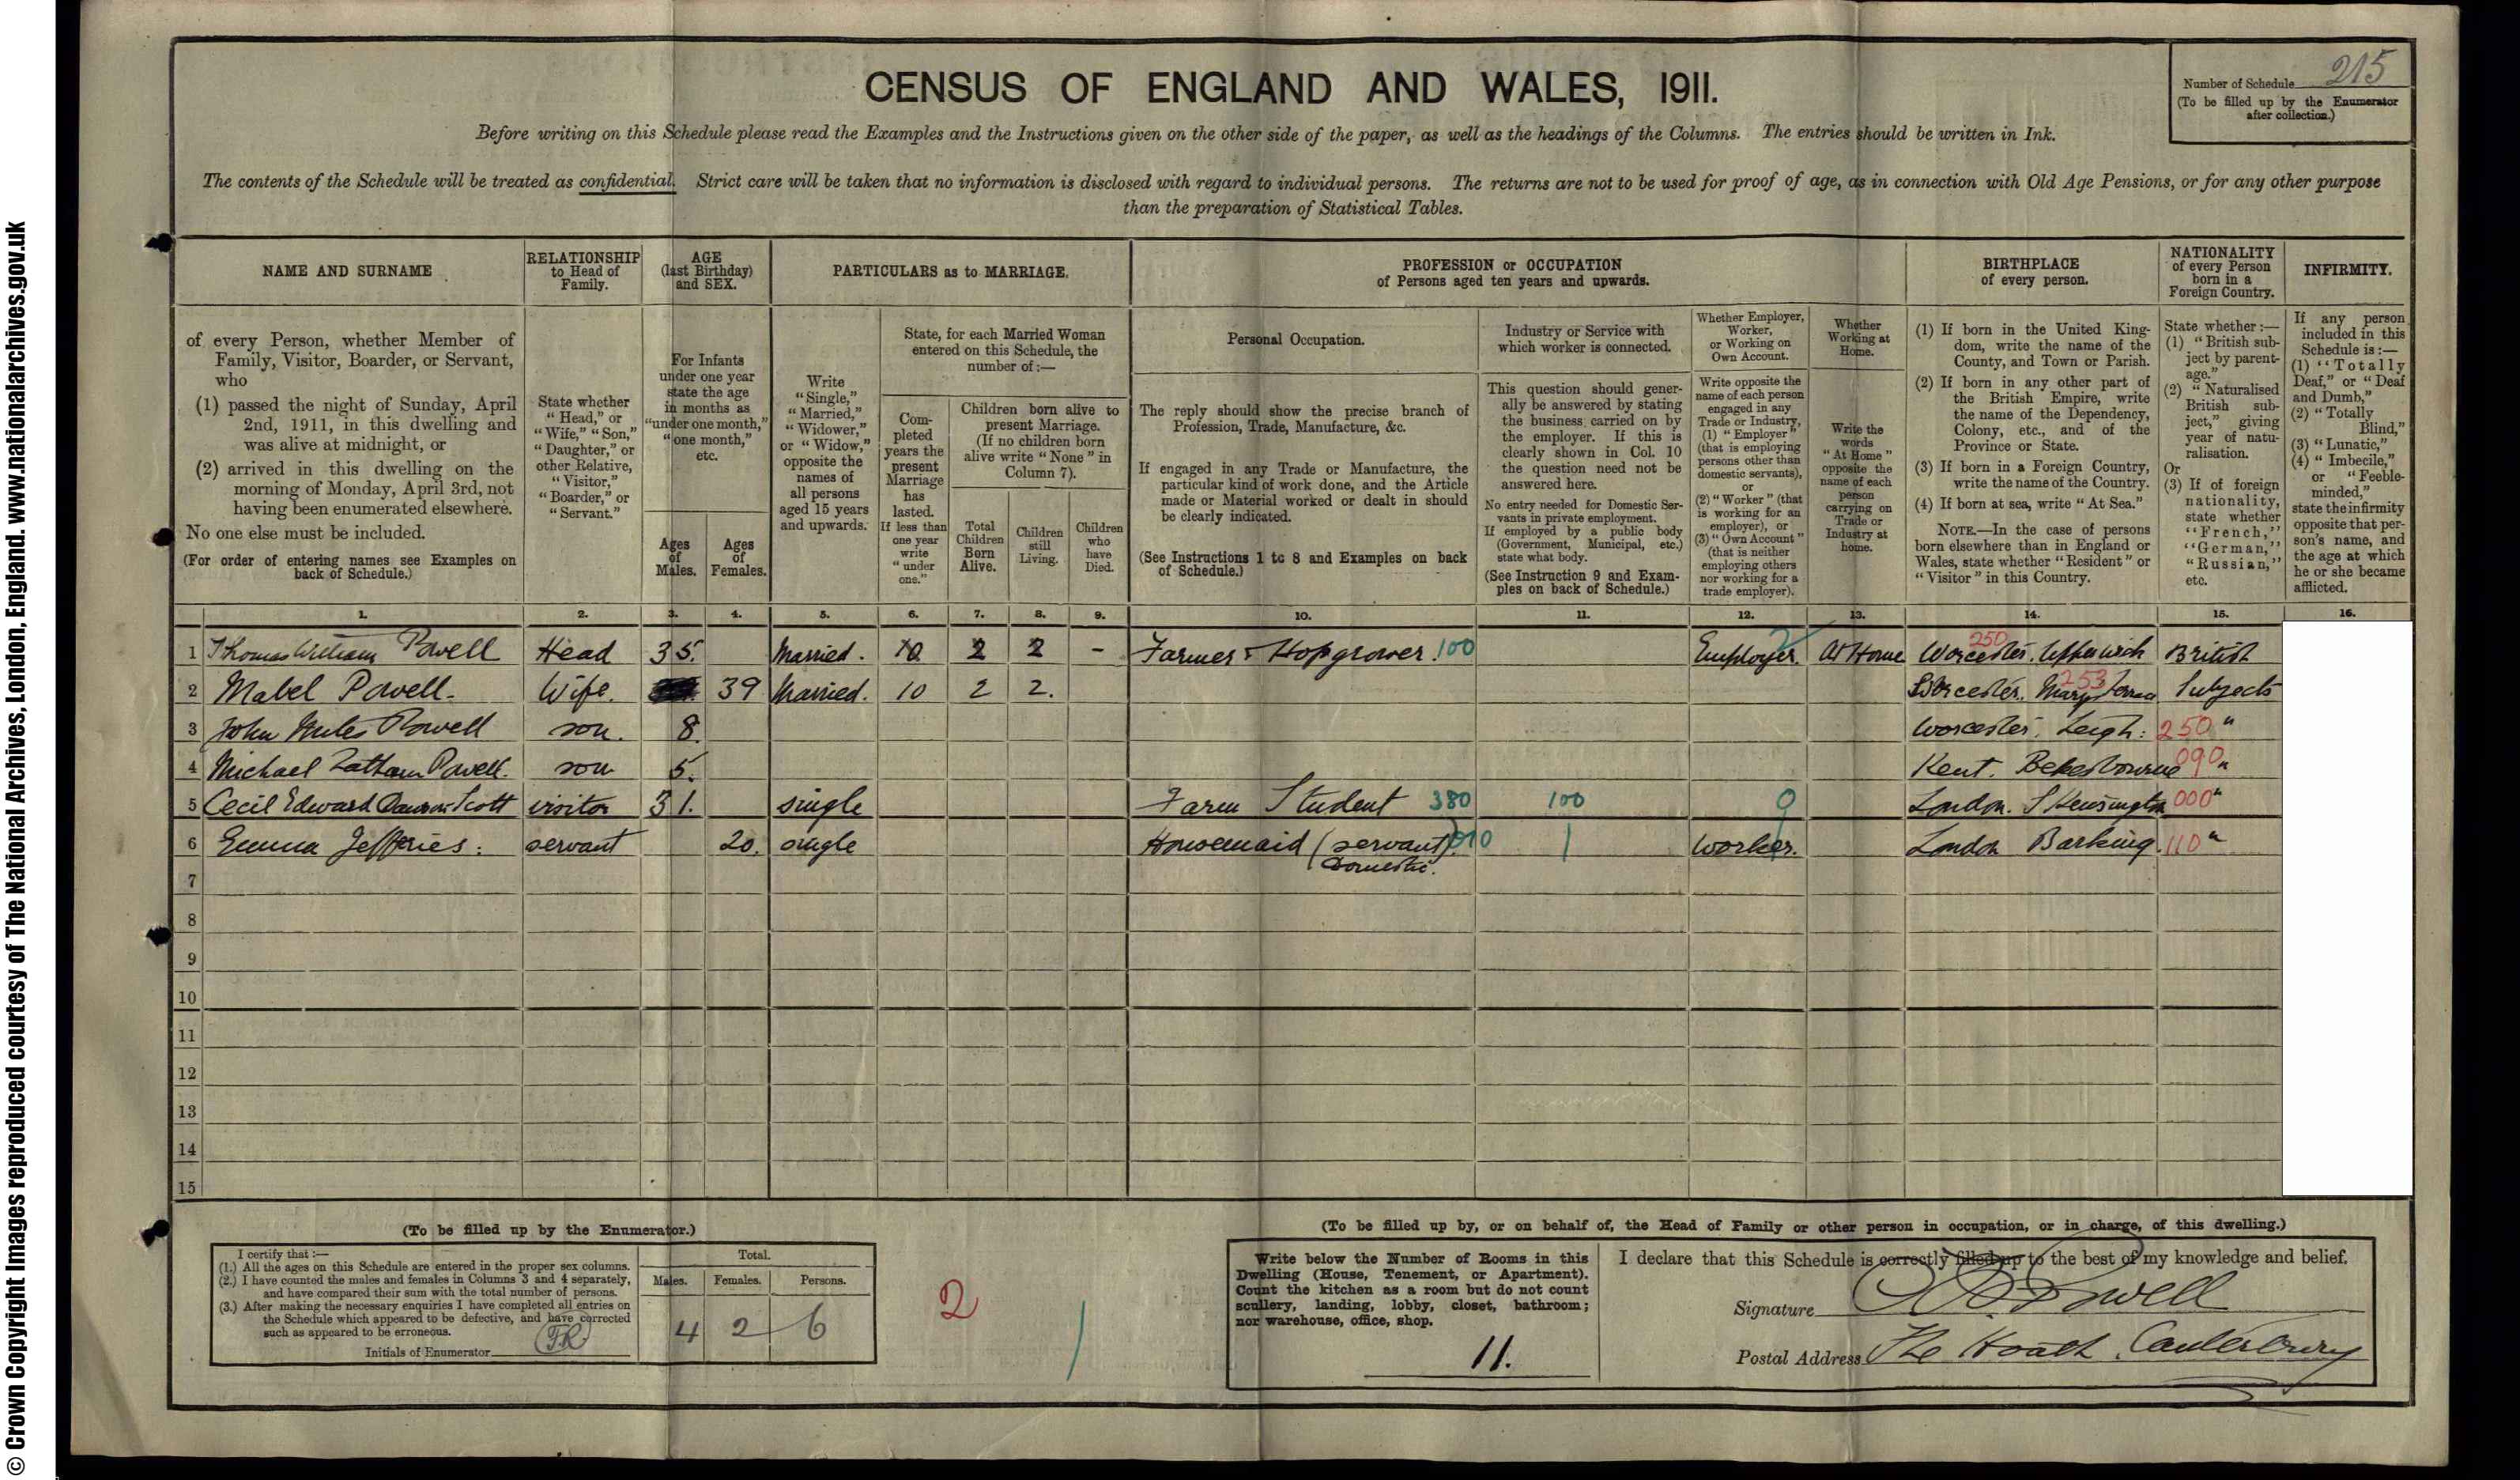 © Crown Copyright Images reproduced courtesy of The National Archives, London, England. www.nationalarchives.gov.uk
CENSUS OF ENGLAND AND WALES, 1911.
Number of Schedule 215
(To be filled up by the Enumerator
after collection.)
Before writing on this Schedule please read the Examples and the Instructions given on the other side of the paper, as well as the headings of the Columns. The entries should be written in Ink.
The contents of the Schedule will be treated as confidential. Strict care will be taken that no information is disclosed with regard to individual persons. The returns are not to be used for proof of age, as in connection with Old Age Pensions, or for any other purpose
than the preparation of Statistical Tables.
NAME AND SURNAME
of every Person, whether Member of
Family, Visitor, Boarder, or Servant,
who
(1) passed the night of Sunday, April
2nd, 1911, in this dwelling and
was alive at midnight, or
(2) arrived in this dwelling on the
morning of Monday, April 3rd, not
having been enumerated elsewhere.
No one else must be included.
(For order of entering names see Examples on
back of Schedule.)
RELATIONSHIP
to Head of
Family.
State whether
"Head," or
"Wife," "Son,"
"Daughter," or
other Relative,
"Visitor,"
"Boarder," or
"Servant."
AGE
(last Birthday)
and SEX.
For Infants
under one year
state the age
in months as
"under one month,"
"one month,"
etc.
Ages
of
Males.
Ages
of
Females.
PARTICULARS as to MARRIAGE.
Write
"Single,"
"Married,"
"Widower,"
or "Widow,"
opposite the
names of
all persons
aged 15 years
and upwards.
State, for each Married Woman
entered on this Schedule, the
number of:—
Com-
pleted
years the
present
Marriage
has
lasted.
If less than
one year
write
"under
one."
Children born alive to
present Marriage.
(If no children born
alive write "None" in
Column 7).
Total
Children
Born
Alive.
Children
still
Living.
Children
who
have
Died.
PROFESSION or OCCUPATION
of Persons aged ten years and upwards.
Personal Occupation.
The reply should show the precise branch of
Profession, Trade, Manufacture, &c.
If engaged in any Trade or Manufacture, the
particular kind of work done, and the Article
made or Material worked or dealt in should
be clearly indicated.
(See Instructions 1 to 8 and Examples on back
of Schedule.)
Industry or Service with
which worker is connected.
This question should gener-
ally be answered by stating
the business carried on by
the employer. If this is
clearly shown in Col. 10
the question need not be
answered here.
No entry needed for Domestic Ser-
vants in private employment.
If employed by a public body
(Government, Municipal, etc.)
state what body.
(See Instruction 9 and Exam-
ples on back of Schedule.)
Whether Employer,
Worker,
or Working on
Own Account.
Write opposite the
name of each person
engaged in any
Trade or Industry,
(1) "Employer"
(that is employing
persons other than
domestic servants),
or
(2) "Worker" (that
is working for an
employer), or
(3) "Own Account"
(that is neither
employing others
nor working for a
trade employer).
Whether
Working at
Home.
Write the
words
"At Home"
opposite the
name of each
person
carrying on
Trade or
Industry at
home.
BIRTHPLACE
of every person.
(1) If born in the United King-
dom, write the name of the
County, and Town or Parish.
(2) If born in any other part of
the British Empire, write
the name of the Dependency,
Colony, etc., and of the
Province or State.
(3) If born in a Foreign Country,
write the name of the Country.
(4) If born at sea, write "At Sea."
NOTE.—In the case of persons
born elsewhere than in England or
Wales, state whether "Resident" or
"Visitor" in this Country.
NATIONALITY
of every Person
born in a
Foreign Country.
State whether :—
(1) "British sub-
ject by parent-
age."
(2) "Naturalised
British sub-
ject," giving
year of natu-
ralisation.
Or
(3) If of foreign
nationality,
state whether
"French,"
"German,"
"Russian,"
etc.
INFIRMITY.
If any person
included in this
Schedule is :—
(1) "Totally
Deaf," or "Deaf
and Dumb,"
(2) "Totally
Blind,"
(3) "Lunatic,"
(4) "Imbecile,"
or "Feeble-
minded,"
state the infirmity
opposite that per-
son's name, and
the age at which
he or she became
afflicted.
1. 2. 3. 4. 5. 6. 7. 8. 9. 10. 11. 12. 13. 14. 15. 16.
1 Thomas William Powell Head 35. Married. 10 2 2 - Farmer & Hopgrower. 100 Employer. At Home Worcester. 250 British
2 Mabel Powell. Wife. 39 Married. 10 2 2. Worcester. 253 Subjects
3 John Powell son. 8. Worcester. Leigh. 250 "
4 Michael Latham Powell. son 5. Kent. Bekesbourne 090 "
5 Cecil Edward Dawson Scott visitor 31. single Farm Student 380 100 0 London. S Kensington 000 "
6 Emma Jefferies. servant 20. single Housemaid (servant) Worker. London Barking. 110 "
Domestic.
7
8
9
10
11
12
13
14
15
(To be filled up by the Enumerator.)
I certify that :—
(1.) All the ages on this Schedule are entered in the proper sex columns.
(2.) I have counted the males and females in Columns 3 and 4 separately,
and have compared their sum with the total number of persons.
(3.) After making the necessary enquiries I have completed all entries on
the Schedule which appeared to be defective, and have corrected
such as appeared to be erroneous.
Initials of Enumerator FR
Total.
Males. Females. Persons.
4 2 6
2
(To be filled up by, or on behalf of, the Head of Family or other person in occupation, or in charge, of this dwelling.)
Write below the Number of Rooms in this
Dwelling (House, Tenement, or Apartment).
Count the kitchen as a room but do not count
scullery, landing, lobby, closet, bathroom;
nor warehouse, office, shop.
11.
I declare that this Schedule is correctly filled up to the best of my knowledge and belief.
Signature Powell
Postal Address The Hoath, Canterbury